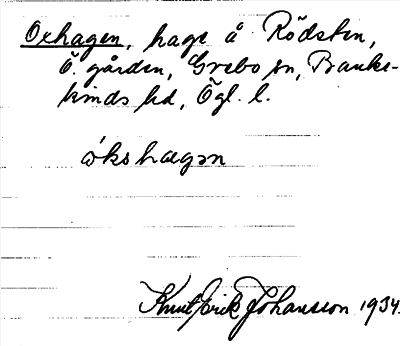 Oxhagen, hage å Rödsten,
Ö. gården, Grebo sn, Banke-
kinds hd, Ögl. l.
ókshagən
Knut Erik Johansson 1934.